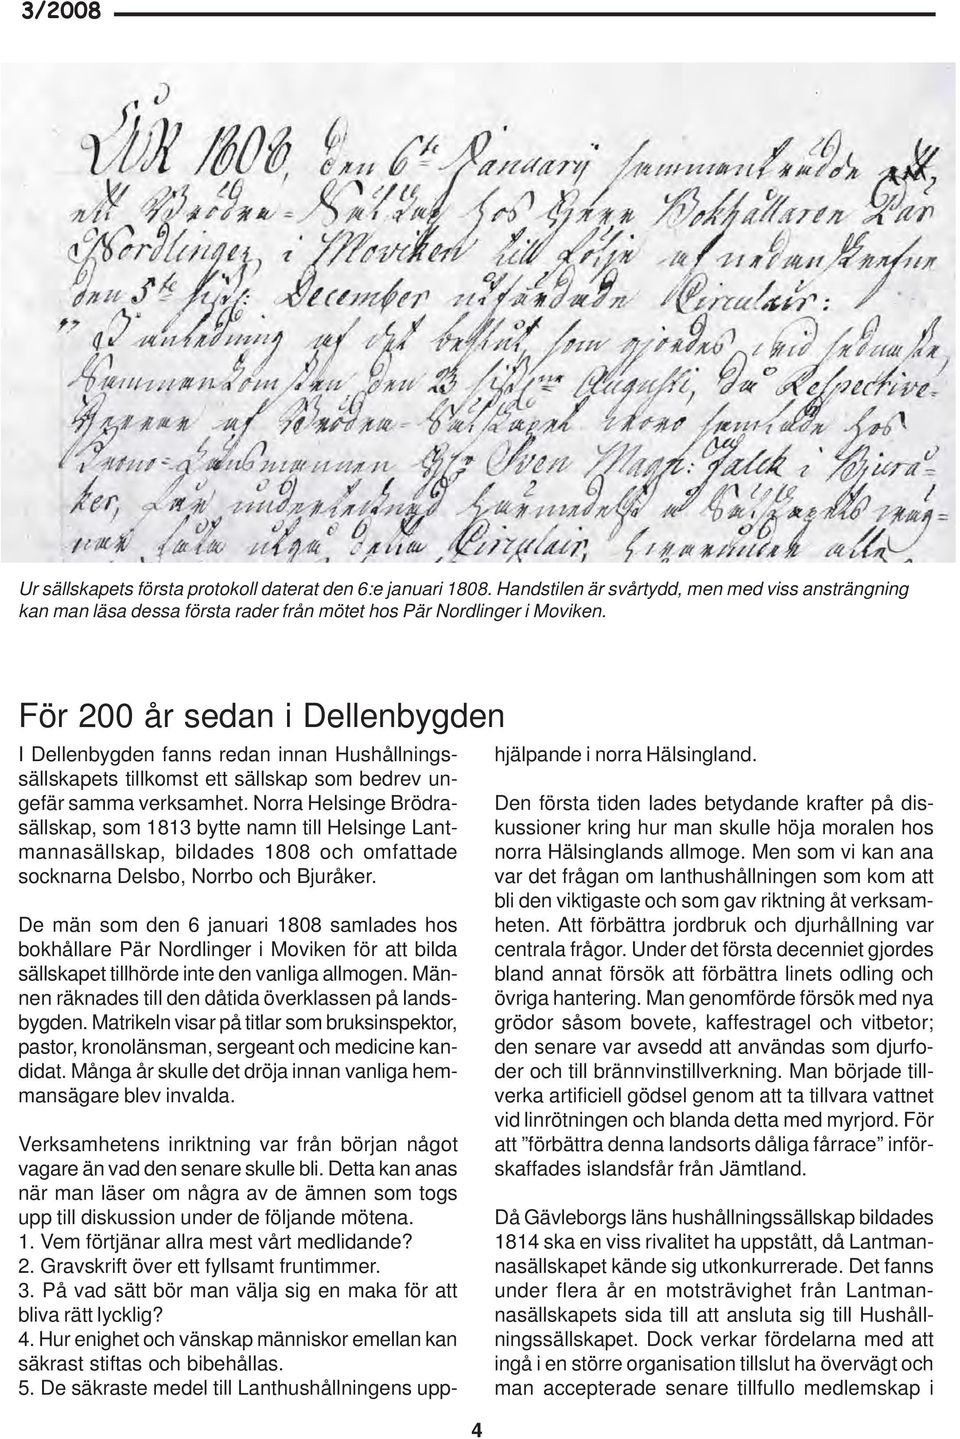 3/2008
ÅR 1808, den 6te Januarÿ sammanträdde ett,
ett Brödra-Sälskap hos Herr Bokhållaren Pär
Nordlinger i Moviken till följe af nedanskrefne
den 5te sistl: December utfärdade Circulair:
"I anledning af det beslut, som gjordes vid sednaste
Sammankomsten den 23 sistl:ne Augusti, då Respective-
Herrar af Brödra-Sälskapet woro samlade hos
Krono-Länsmannen H:r Sven Magn: Falck i Bjurå-
ker, får undertecknad härmedelst å Sälskapets wäg-
nar låta utgå detta Circulair, hvarunder alle
Ur sällskapets första protokoll daterat den 6:e januari 1808. Handstilen är svårtydd, men med viss ansträngning
kan man läsa dessa första rader från mötet hos Pär Nordlinger i Moviken.
För 200 år sedan i Dellenbygden
I Dellenbygden fanns redan innan Hushållnings-
sällskapets tillkomst ett sällskap som bedrev un-
gefär samma verksamhet. Norra Helsinge Brödra-
sällskap, som 1813 bytte namn till Helsinge Lant-
mannasällskap, bildades 1808 och omfattade
socknarna Delsbo, Norrbo och Bjuråker.
De män som den 6 januari 1808 samlades hos
bokhållare Pär Nordlinger i Moviken för att bilda
sällskapet tillhörde inte den vanliga allmogen. Män-
nen räknades till den dåtida överklassen på lands-
bygden. Matrikeln visar på titlar som bruksinspektor,
pastor, kronolänsman, sergeant och medicine kan-
didat. Många år skulle det dröja innan vanliga hem-
mansägare blev invalda.
Verksamhetens inriktning var från början något
vagare än vad den senare skulle bli. Detta kan anas
när man läser om några av de ämnen som togs
upp till diskussion under de följande mötena.
1. Vem förtjänar allra mest vårt medlidande?
2. Gravskrift över ett fyllsamt fruntimmer.
3. På vad sätt bör man välja sig en maka för att
bliva rätt lycklig?
4. Hur enighet och vänskap människor emellan kan
säkrast stiftas och bibehållas.
5. De säkraste medel till Lanthushållningens upp-
hjälpande i norra Hälsingland.
Den första tiden lades betydande krafter på dis-
kussioner kring hur man skulle höja moralen hos
norra Hälsinglands allmoge. Men som vi kan ana
var det frågan om lanthushållningen som kom att
bli den viktigaste och som gav riktning åt verksam-
heten. Att förbättra jordbruk och djurhållning var
centrala frågor. Under det första decenniet gjordes
bland annat försök att förbättra linets odling och
övriga hantering. Man genomförde försök med nya
grödor såsom bovete, kaffestragel och vitbetor;
den senare var avsedd att användas som djurfo-
der och till brännvinstillverkning. Man började till-
verka artificiell gödsel genom att ta tillvara vattnet
vid linrötningen och blanda detta med myrjord. För
att "förbättra denna landsorts dåliga fårrace" inför-
skaffades islandsfår från Jämtland.
Då Gävleborgs läns hushållningssällskap bildades
1814 ska en viss rivalitet ha uppstått, då Lantman-
nasällskapet kände sig utkonkurrerade. Det fanns
under flera år en motsträvighet från Lantman-
nasällskapets sida till att ansluta sig till Hushåll-
ningssällskapet. Dock verkar fördelarna med att
ingå i en större organisation tillslut ha övervägt och
man accepterade senare tillfullo medlemskap i
4